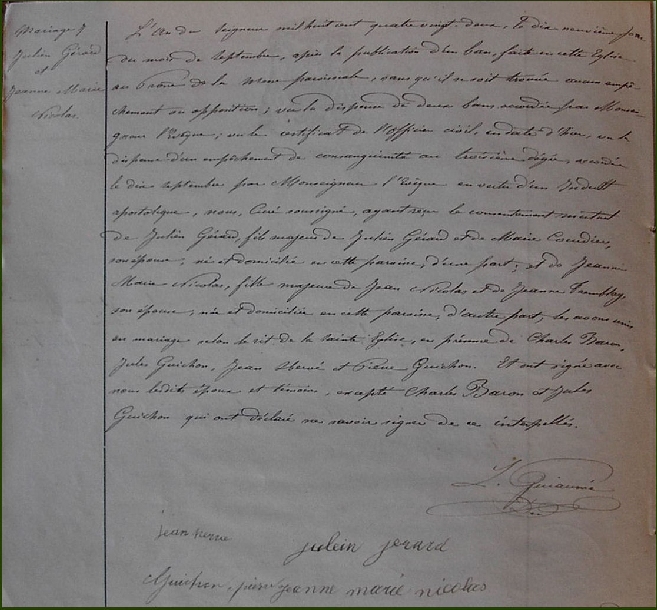 Mariage de
Julien Gérard
et
Jeanne Marie
Nicolas.
L'an du Seigneur mil huit cent quatre vingt-deux, le dix neuvième jour
du mois de Septembre, après la publication d'un ban, faite en cette Eglise
au Prône de la messe paroissiale, sans qu'il ne soit trouvé aucun empê-
chement ou opposition; vu la dispense de deux bans accordée par Monsei-
gneur l'Evêque; vu le certificat de l'officier civil, en date d'hier, vu la
dispense d'un empêchement de consanguinité au troisième degré, accordée
le dix septembre par Monseigneur l'Evêque en vertu d'un Indult
apostolique, nous, Curé soussigné, ayant reçu le consentement mutuel
de Julien Gérard, fils majeur de Julien Gérard et de Marie
son épouse, né et domicilié en cette paroisse, d'une part; et de Jeanne
Marie Nicolas, fille majeure de Jean Nicolas et de Jeanne
son épouse, née et domiciliée en cette paroisse, d'autre part; les avons unis
en mariage selon le rit de la Sainte Eglise, en présence de Charles Baron,
Jules Guichon, Jean Hervé et Pierre Guichon. Et ont signé avec
nous lesdits époux et témoins, excepté Charles Baron et Jules
Guichon qui ont déclaré ne savoir signer de ce interpellés.
jean herve
julein jerard
Guichon pierre jeanne marie nicolas